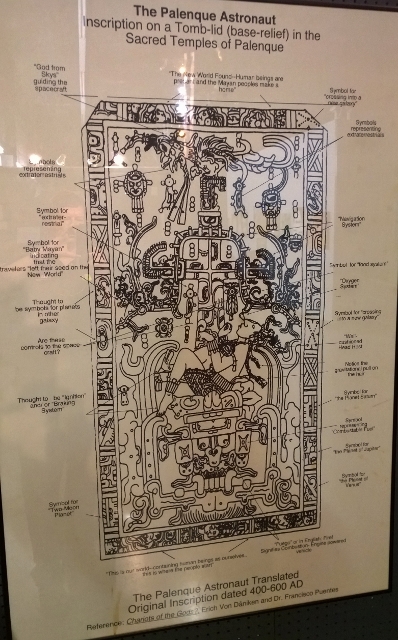 The Palenque Astronaut
Inscription on a Tomb-lid (base-relief) in the
Sacred Temples of Palenque
"God from
Skys"
guiding the
spacecraft
"The New World Found--Human beings are
present and the Mayan peoples make a
home"
Symbol for
"crossing into a
new galaxy"
Symbols
representing
extraterrestrials
Symbols
representing
extraterrestrials
Symbol for
"extrater-
restrial"
Symbol for
"Baby Mayan"
indicating
that the
travelers "left their seed on the
New World"
Thought to
be symbols for planets
in other
galaxy
Are these
controls to the space
craft?
Thought to be "Ignition"
and/or "Braking
System"
Symbol for
"Two-Moon
Planet"
"Navigation
System"
Symbol for "food system"
"Oxygen
System"
Symbol for "crossing
into a new galaxy"
"Well-
cushioned
Head Rest
Notice the
gravitational pull on
the
Symbol for
"the Planet Saturn"
Symbol
representing
"Combustable Fuel"
Symbol for
"the Planet of Jupiter"
Symbol for
"the Planet of
Venus"
"This is our world--containing human beings as ourselves...
this is where the people abid"
"Fuego" or in English, Fuel
Signifies Combustion, Engine-powered
vehicle
The Palenque Astronaut Translated
Original Inscription dated 400-600 AD
Reference: Chariots of the Gods?, Erich Von Däniken and Dr. Francisco Puentes